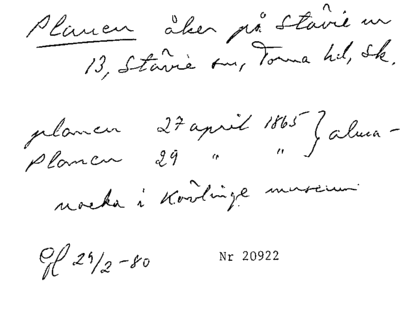 Planen åker på Stävie nr
13, Stävie sn, Torna hd, Sk.
planen 27 april 1865 } alma-
Planen 29 " "
nacka i Kävlinge museum
29/2 -80
Nr 20922